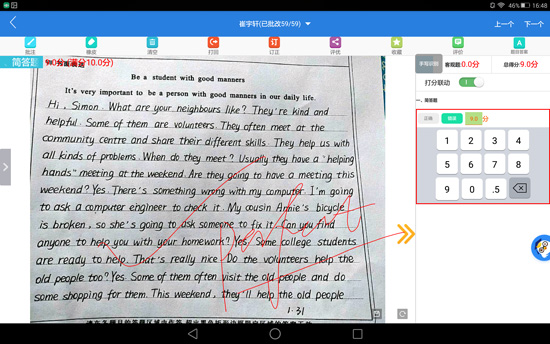 46% 16:48
崔宇轩(已批改59/59)
上一个 下一个
批注 橡皮 清空 打回 订正 评优 收藏 评价 题目答案
简答题 9.0分(满分10.0分)
客观题0.0分 总得分9.0分
打分联动 1
一、简答题
正确 错误 9.0 分
1 2 3 4
5 6 7 8
9 0 .5
Be a student with good manners
It's very important to be a person with good manners in our daily life.
Hi, Simon. What are your neighbours like? They're kind and
helpful. Some of them are volunteers. They often meet at the
community centre and share their different skills. They help us with
all kinds of problems. When do they meet? Usually they have a "helping
hands" meeting at the weekend. Are they going to have a meeting this
weekend? Yes. There's something wrong with my computer. I'm going
to ask a computer engineer to check it. My cousin Annie's bicycle
is broken, so she's going to ask someone to fix it. Can you find
anyone to help you with your homework? Yes. Some college students
are ready to help. That's really nice. Do the volunteers help the
old people too? Yes. Some of them often visit the old people and do
some shopping for them. This weekend, they'll help the old people
1.31